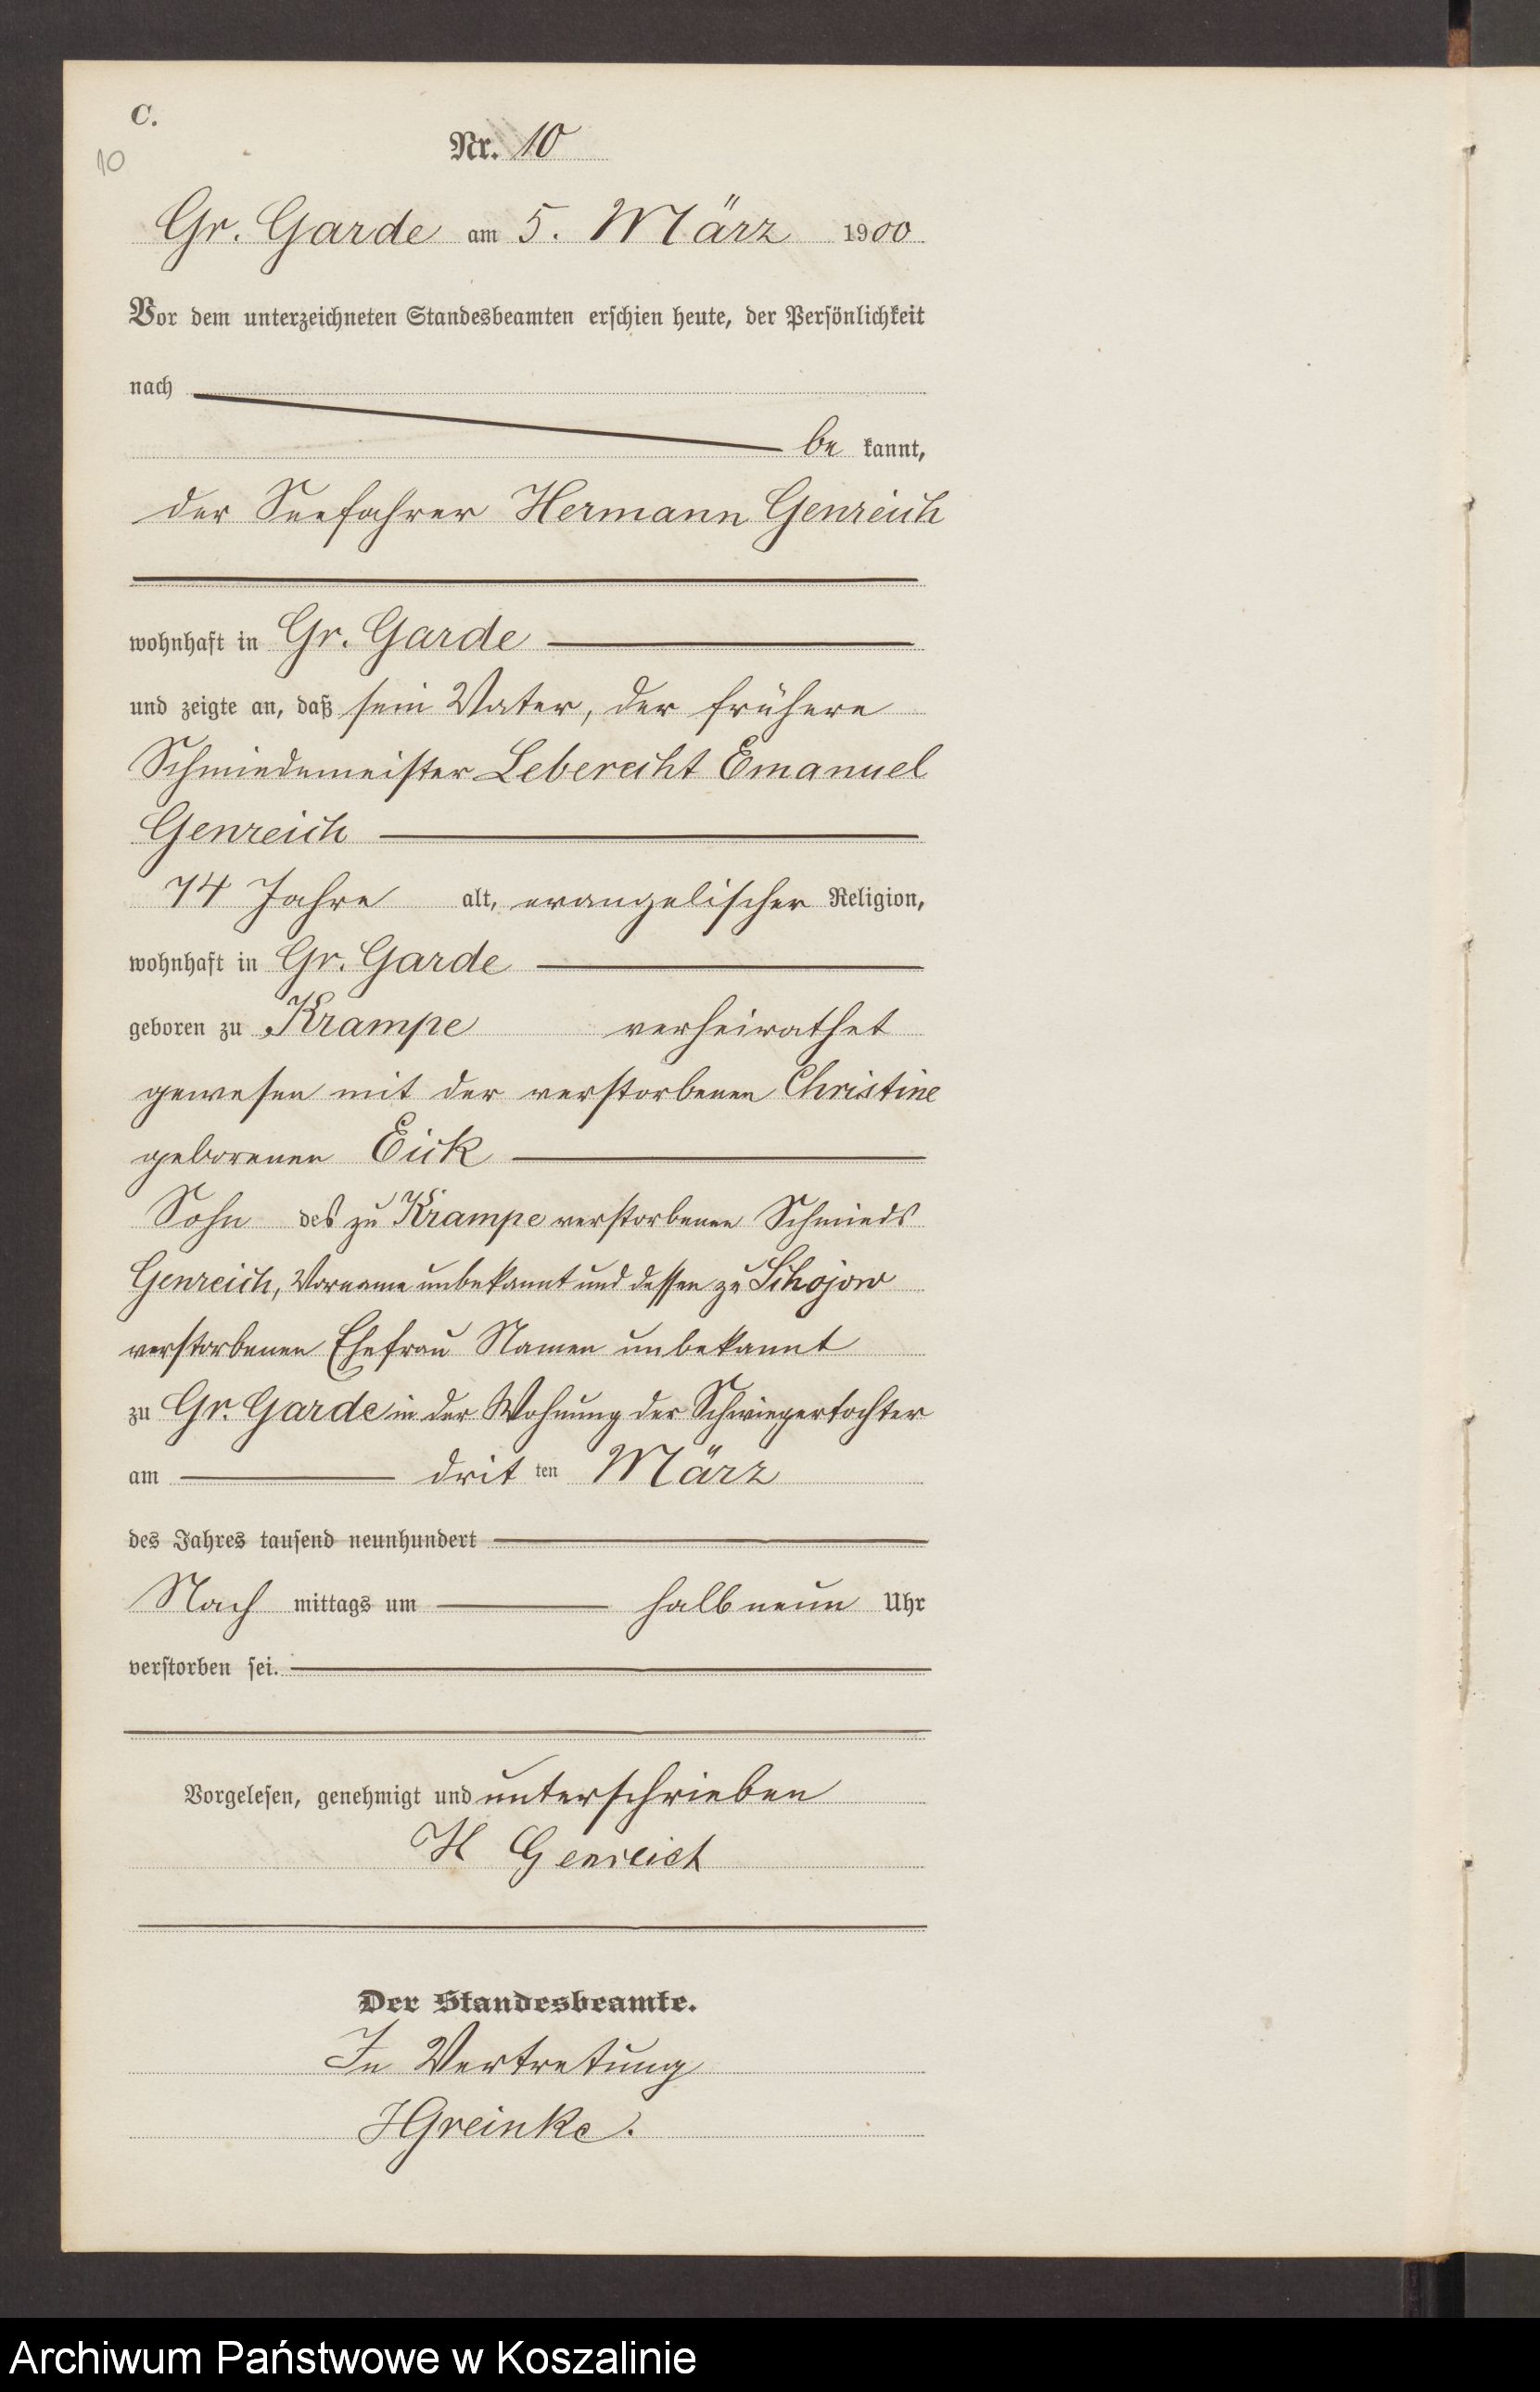 C.
10
Nr. 10
Gr. Garde am 5. März 1900
Vor dem unterzeichneten Standesbeamten erschien heute, der Persönlichkeit
nach
be kannt,
der Seefahrer Hermann Genreich
wohnhaft in Gr. Garde
und zeigte an, daß sein Vater, der frühere
Schmiedemeister Leberecht Emanuel
Genreich
74 Jahre alt, evangelischer Religion,
wohnhaft in Gr. Garde
geboren zu Krampe verheirathet
gewesen mit der verstorbenen Christine
geborenen Eick
Sohn des zu Krampe verstorbenen Schmieds
Genreich, Vorname unbekannt und dessen zu Schojow
verstorbenen Ehefrau Namen unbekannt
zu Gr. Garde in der Wohnung der Schwiegertochter
am drit ten März
des Jahres tausend neunhundert
Nach mittags um halb neun Uhr
verstorben sei.
Vorgelesen, genehmigt und unterschrieben
H Genreich
Der Standesbeamte.
In Vertretung
HGreinke.
Archiwum Państwowe w Koszalinie